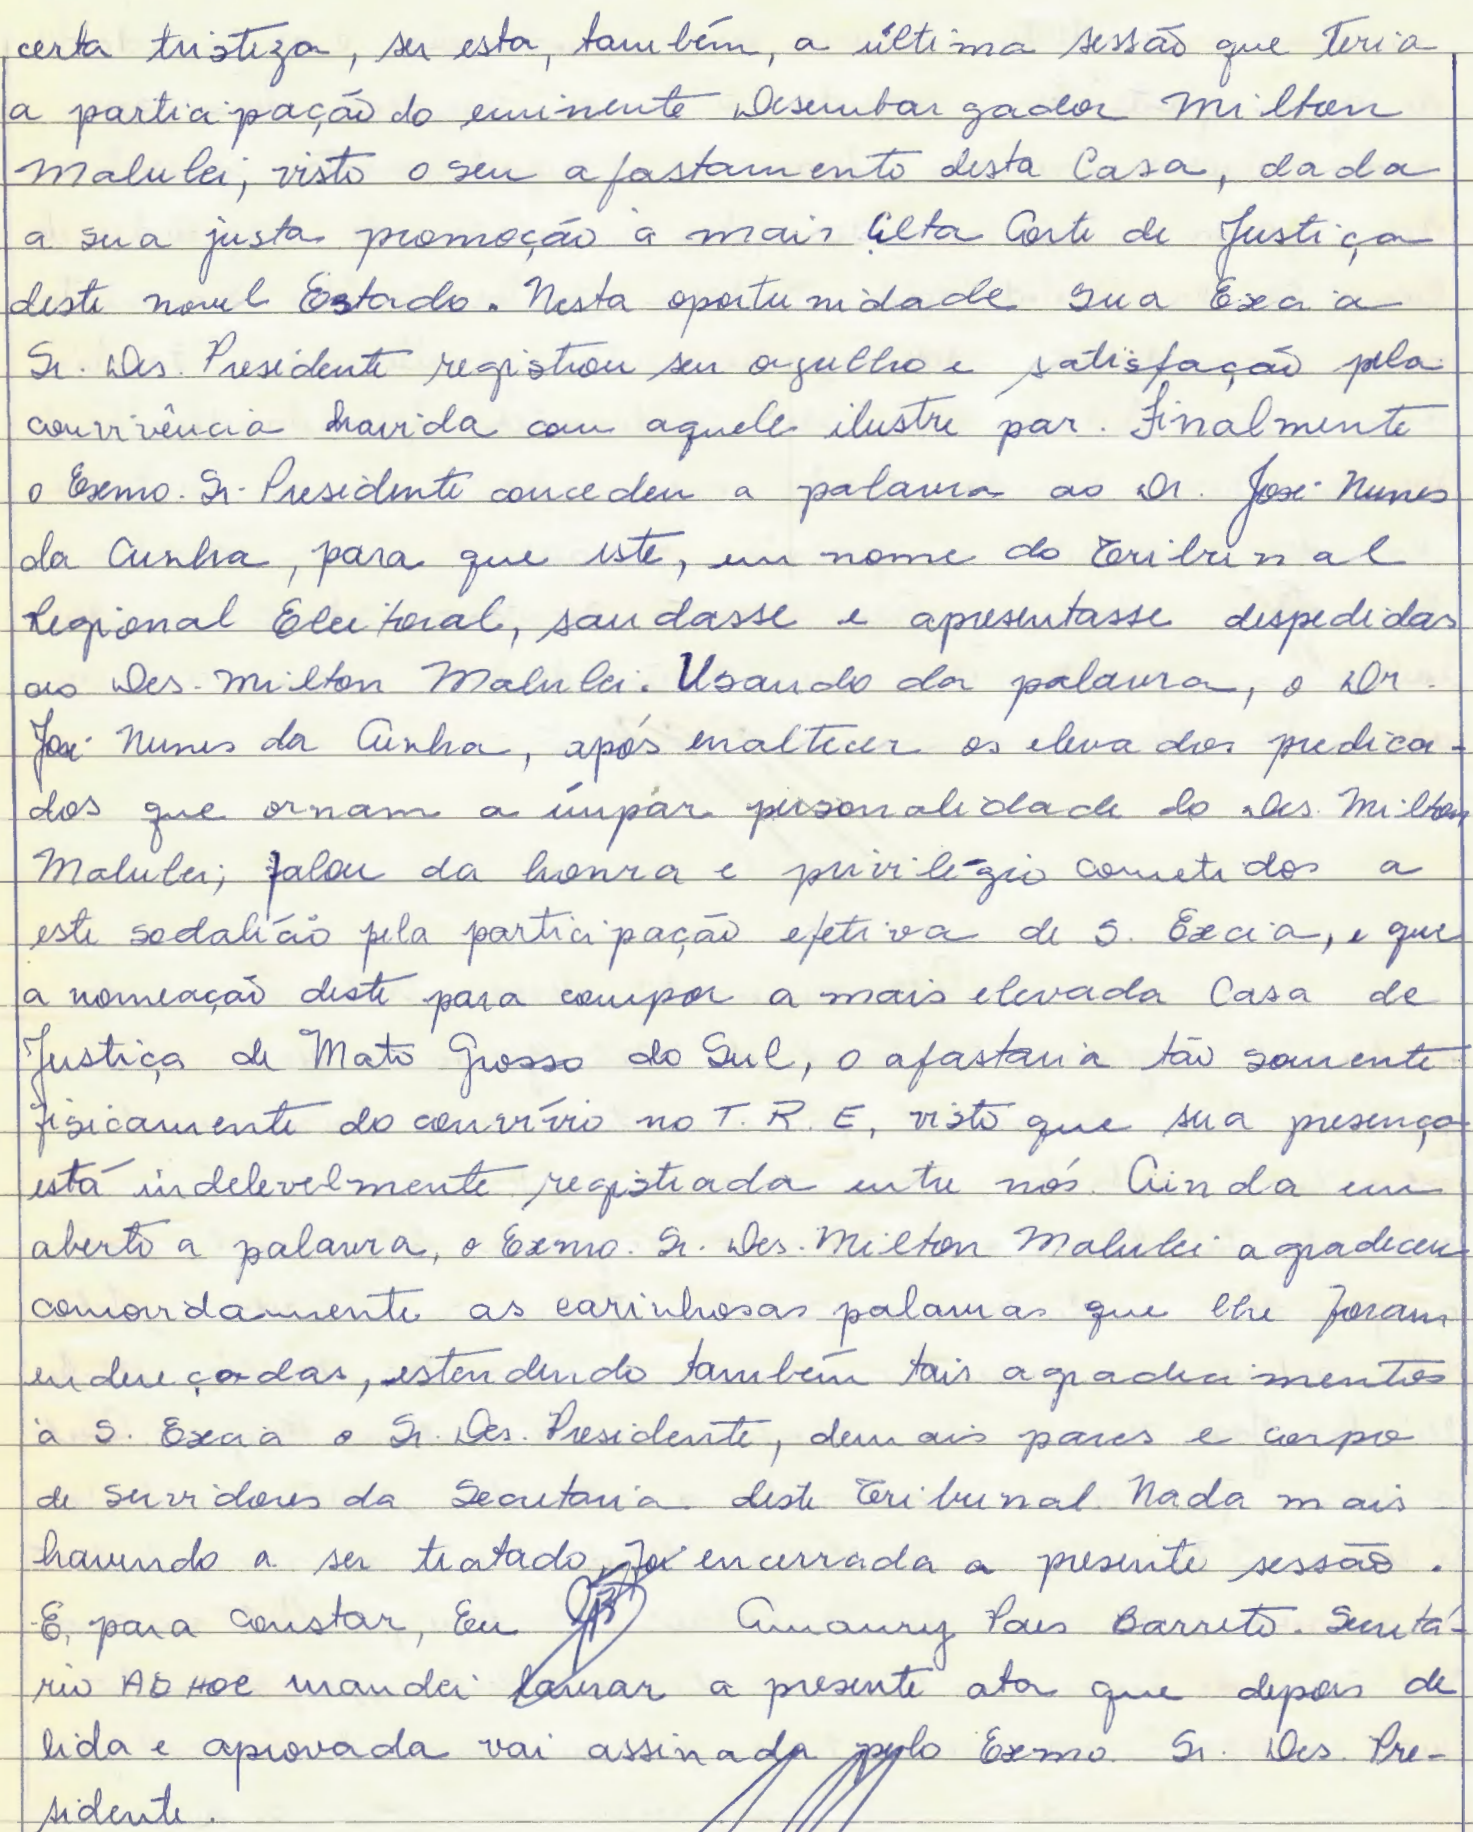 certa tristeza, ser esta, também, a última sessão que teria
a participação do eminente Desembargador Milton
Malulei, visto o seu afastamento desta Casa, dada
a sua justa promoção a mais Alta Corte de Justiça
deste novel Estado. Nesta oportunidade Sua Excia
Sr. Des. Presidente registrou seu orgulho e satisfação pela
convivência havida com aquele ilustre par. Finalmente
o Exmo. Sr. Presidente concedeu a palavra ao Dr. José Nunes
da Cunha, para que este, em nome do Tribunal
Regional Eleitoral, saudasse e apresentasse despedidas
ao Des. Milton Malulei. Usando da palavra, o Dr.
José Nunes da Cunha, após enaltecer os elevados predica-
dos que ornam a ímpar personalidade do Des. Milton
Malulei; falou da honra e privilégio cometidos a
este sodalício pela participação efetiva de S. Excia, e que
a nomeação deste para compor a mais elevada Casa de
Justiça de Mato Grosso do Sul, o afastaria tão somente
fisicamente do convívio no T. R. E, visto que sua presença
está indelevelmente registrada entre nós. Ainda em
aberto a palavra, o Exmo. Sr. Des. Milton Malulei agradeceu
comovidamente as carinhosas palavras que lhe foram
endereçadas, estendendo também tais agradecimentos
à S. Excia o Sr. Des. Presidente, demais pares e corpo
de servidores da Secretaria deste Tribunal. Nada mais
havendo a ser tratado, foi encerrada a presente sessão.
E, para constar, Eu Amaury Paes Barreto. Secretá-
rio AD HOC mandei lavrar a presente ata que depois de
lida e aprovada vai assinada pelo Exmo. Sr. Des. Pre-
sidente.